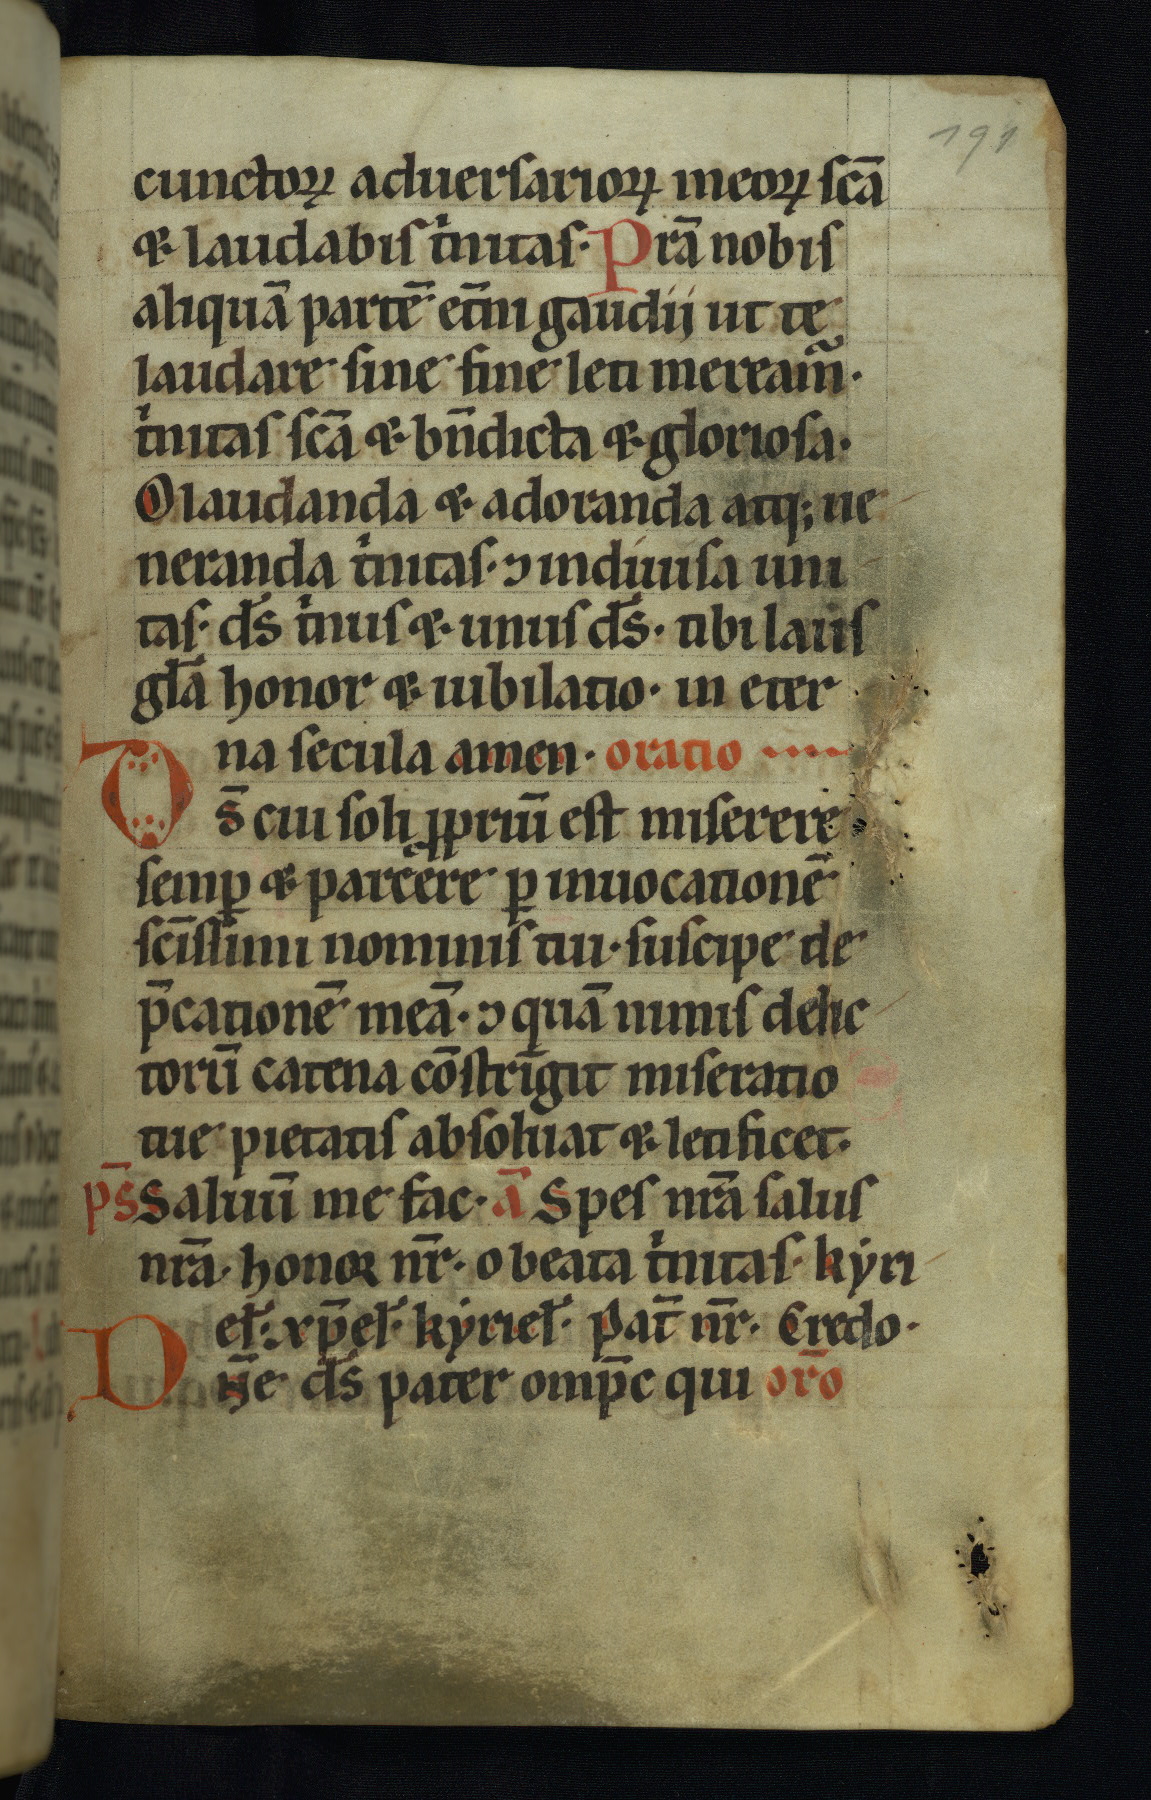 191
cunctoꝝ aduersarioꝝ meoꝝ sc̄a
⁊ laudabis tͥnitas· Prā nobis
aliquā partē et̄ni gaudij ut te
laudare sine fine leti meream̃·
tͥnitas sc̄a ⁊ bn̄dicta ⁊ gloriosa·
O laudanda ⁊ adoranda atq; ue
neranda tͥnitas· ⁊ indiuisa uni
tas· ds̄ tͥnus ⁊ unus ds̄· tibi laus
gl̄a honor ⁊ iubilatio· in eter
na secula amen· oratio
Ds̄ cui soli ꝓpriū est miserere
semꝑ ⁊ parcere ꝑ inuocationē
sc̄issimi nominis tui· suscipe de
p̄cationē meā· ⁊ quā nimis delic
torū catena cōstringit miseratio
tue pietatis absoluat ⁊ letificet·
ps̄ Saluū me fac· ā Spes nr̄a salus
nr̄a· honor nr̄· o beata tͥnitas· kyri
el̄· xp̄el̄· kyriel̄· Pat̄ nr̄· Credo·
Dn̄e ds̄ pater omp̄c qui or̄o